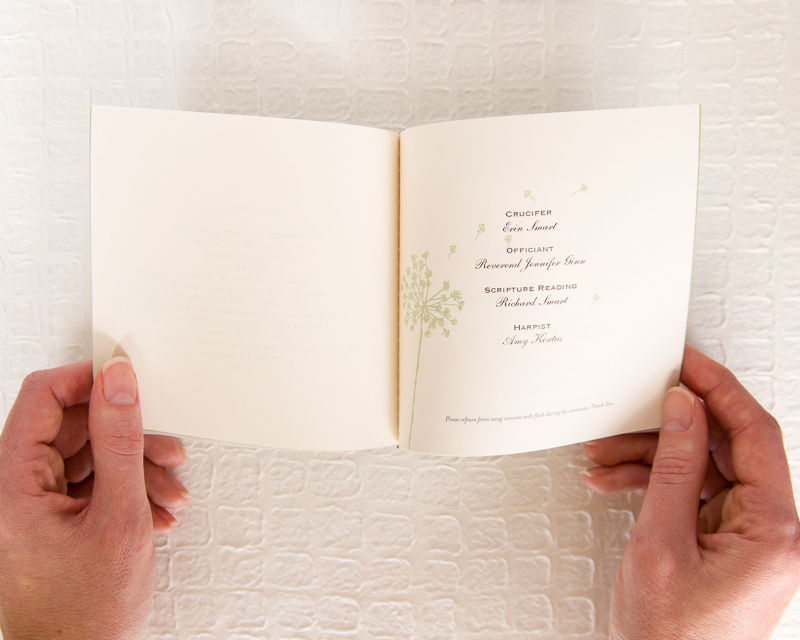 CRUCIFER
Erin Smart
OFFICIANT
Reverend Jennifer Ginn
SCRIPTURE READING
Richard Smart
HARPIST
Amy Kortus
Please refrain from using cameras with flash during the ceremony. Thank You.